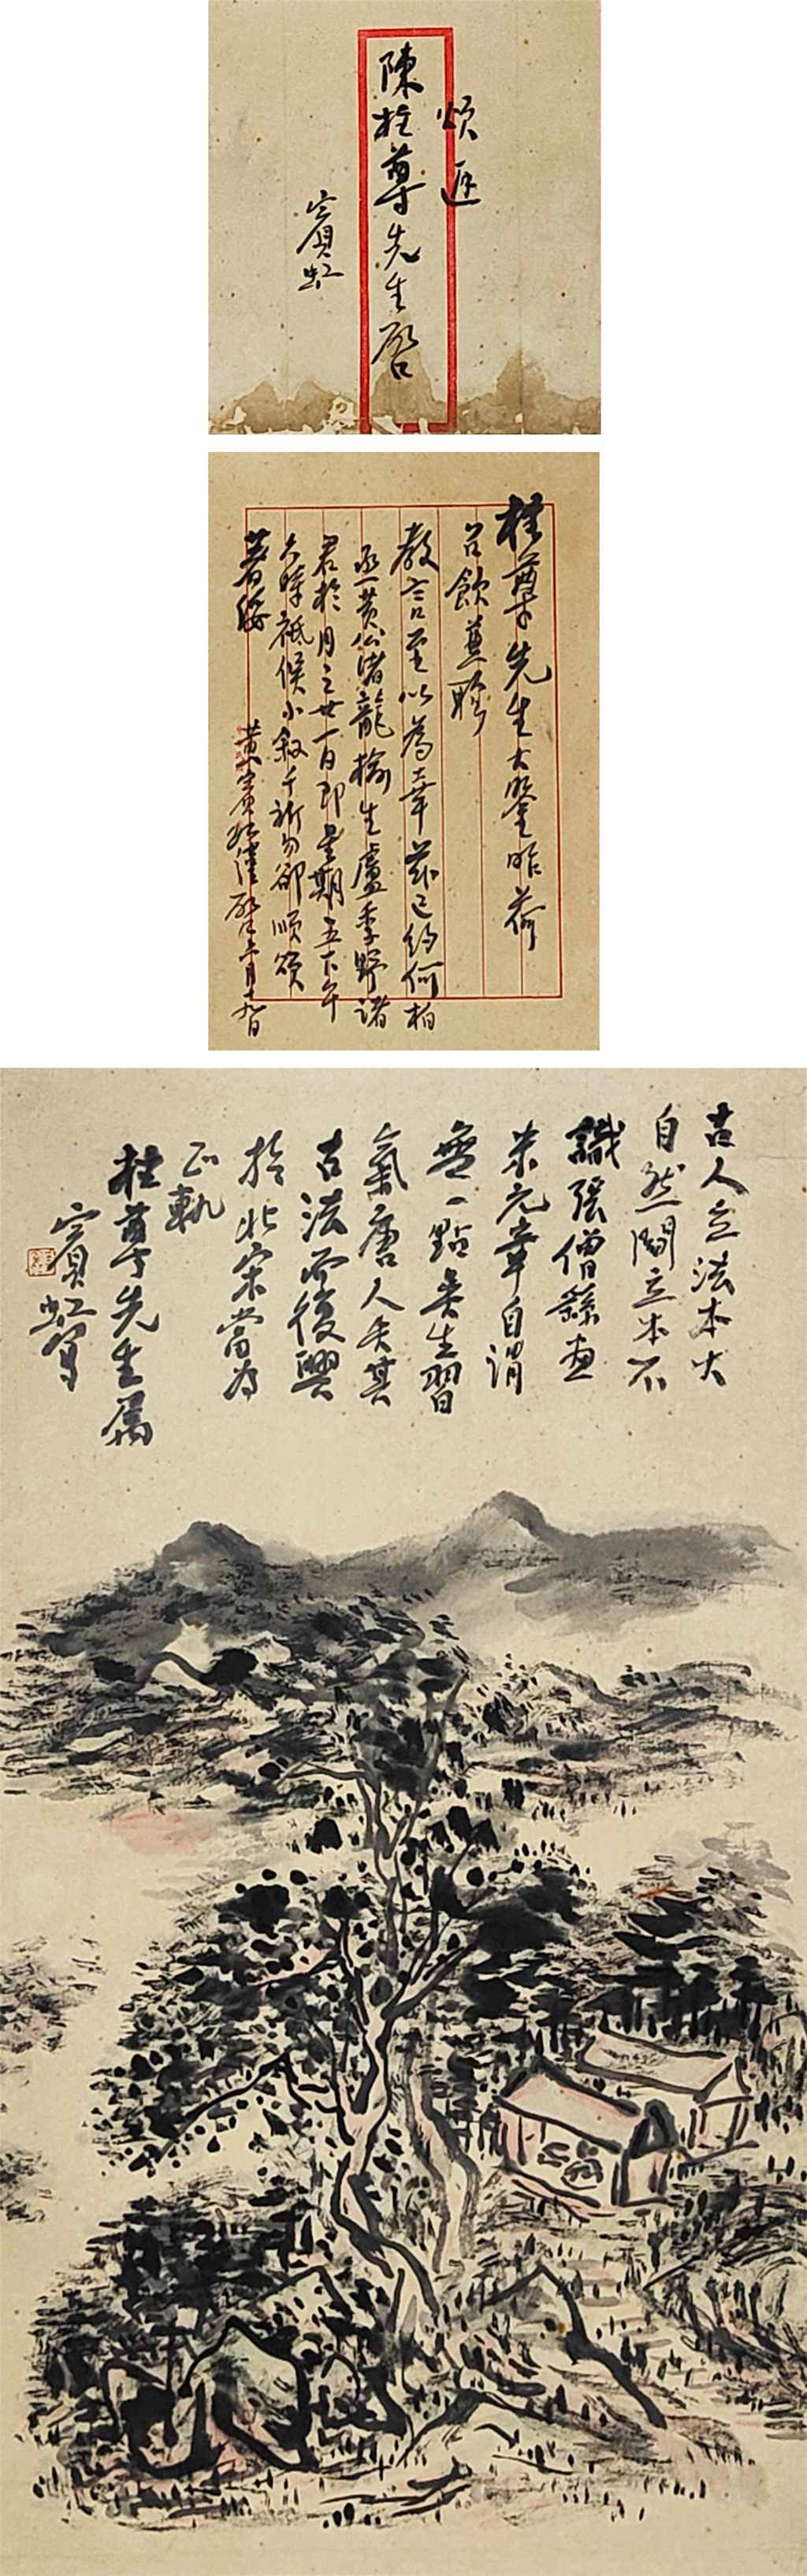 頌 逕
陳柱尊先生啓
賓虹
柱尊先生大鑒昨荷
召飲兼聆
教言至以為幸茲已約何柏
丞黃公渚龍榆生盧季野諸
君於月之廿一日即星期五下午
六時祗候小敘千祈勿卻順頌
著綏
黃賓虹謹啓 二月十九日
古人立法本大
自然閻立本不
識張僧繇畫
米元章自謂
無一點吳生習
氣唐人失其
古法而復興
於北宋當為
正軌
柱尊先生屬
賓虹寫